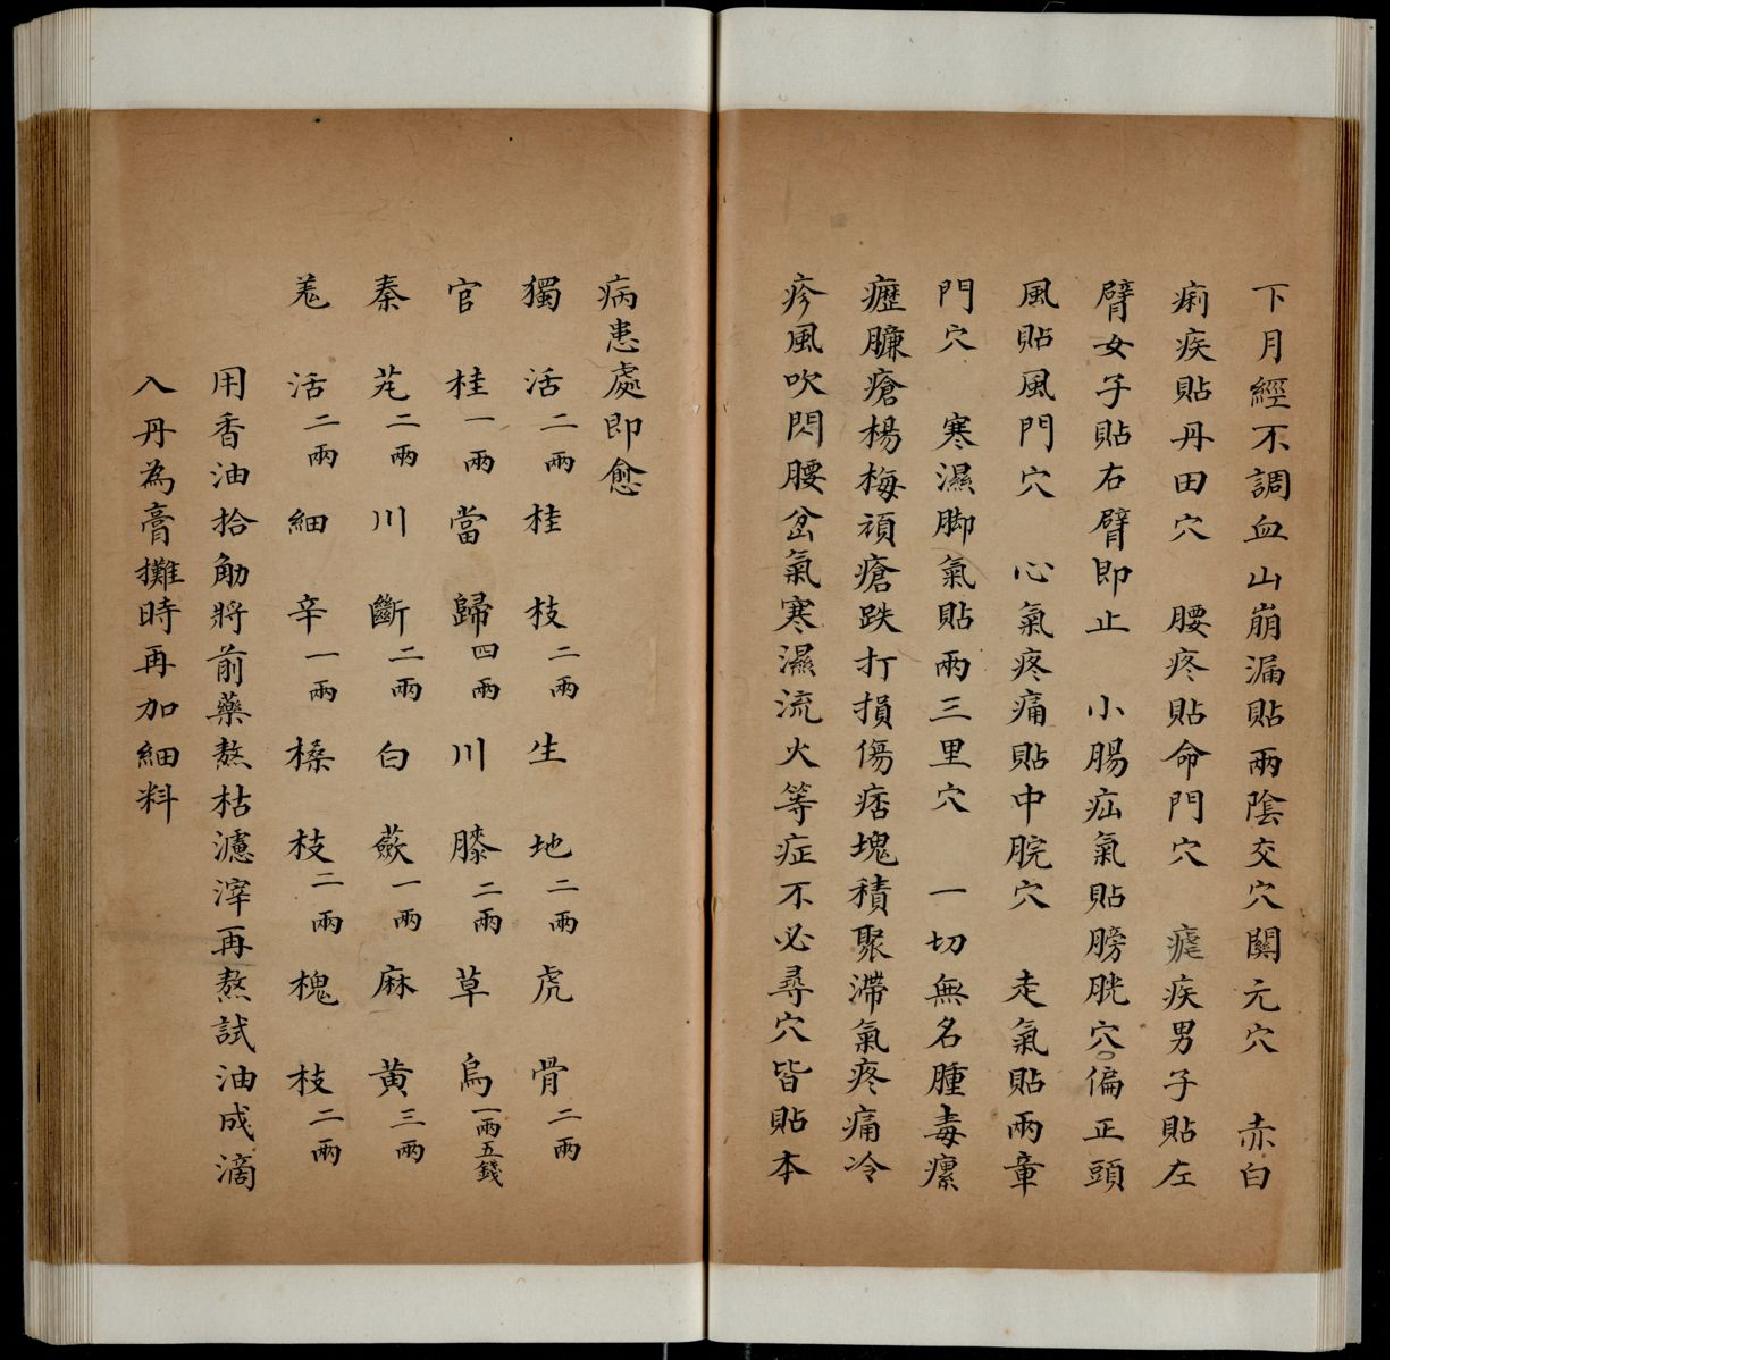 下月經不調血山崩漏貼兩陰交穴關元穴　赤白
痢疾貼丹田穴　腰疼貼命門穴　瘧疾男子貼左
臂女子貼右臂即止　小腸疝氣貼膀胱穴○偏正頭
風貼風門穴　心氣疼痛貼中脘穴　走氣貼兩章
門穴　寒濕脚氣貼兩三里穴　一切無名腫毒瘰
癧臁瘡楊梅頑瘡跌打損傷痞塊積聚滯氣疼痛冷
疹風吹閃腰岔氣寒濕流火等症不必尋穴皆貼本
病患處即愈
獨活二兩　桂枝二兩　生地二兩　虎骨二兩
官桂一兩　當歸四兩　川膝二兩　草烏一兩五錢
秦艽二兩　川斷二兩　白蘞一兩　麻黃三兩
羗活二兩　細辛一兩　槡枝二兩　槐枝二兩
用香油拾觔將前藥熬枯濾滓再熬試油成滴
入丹為膏攤時再加細料